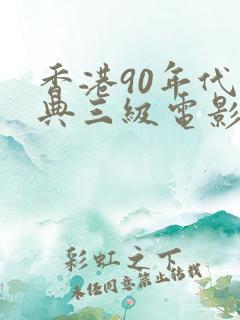 香港90年代
典三级电影
彩虹之下
未经同意禁止转载